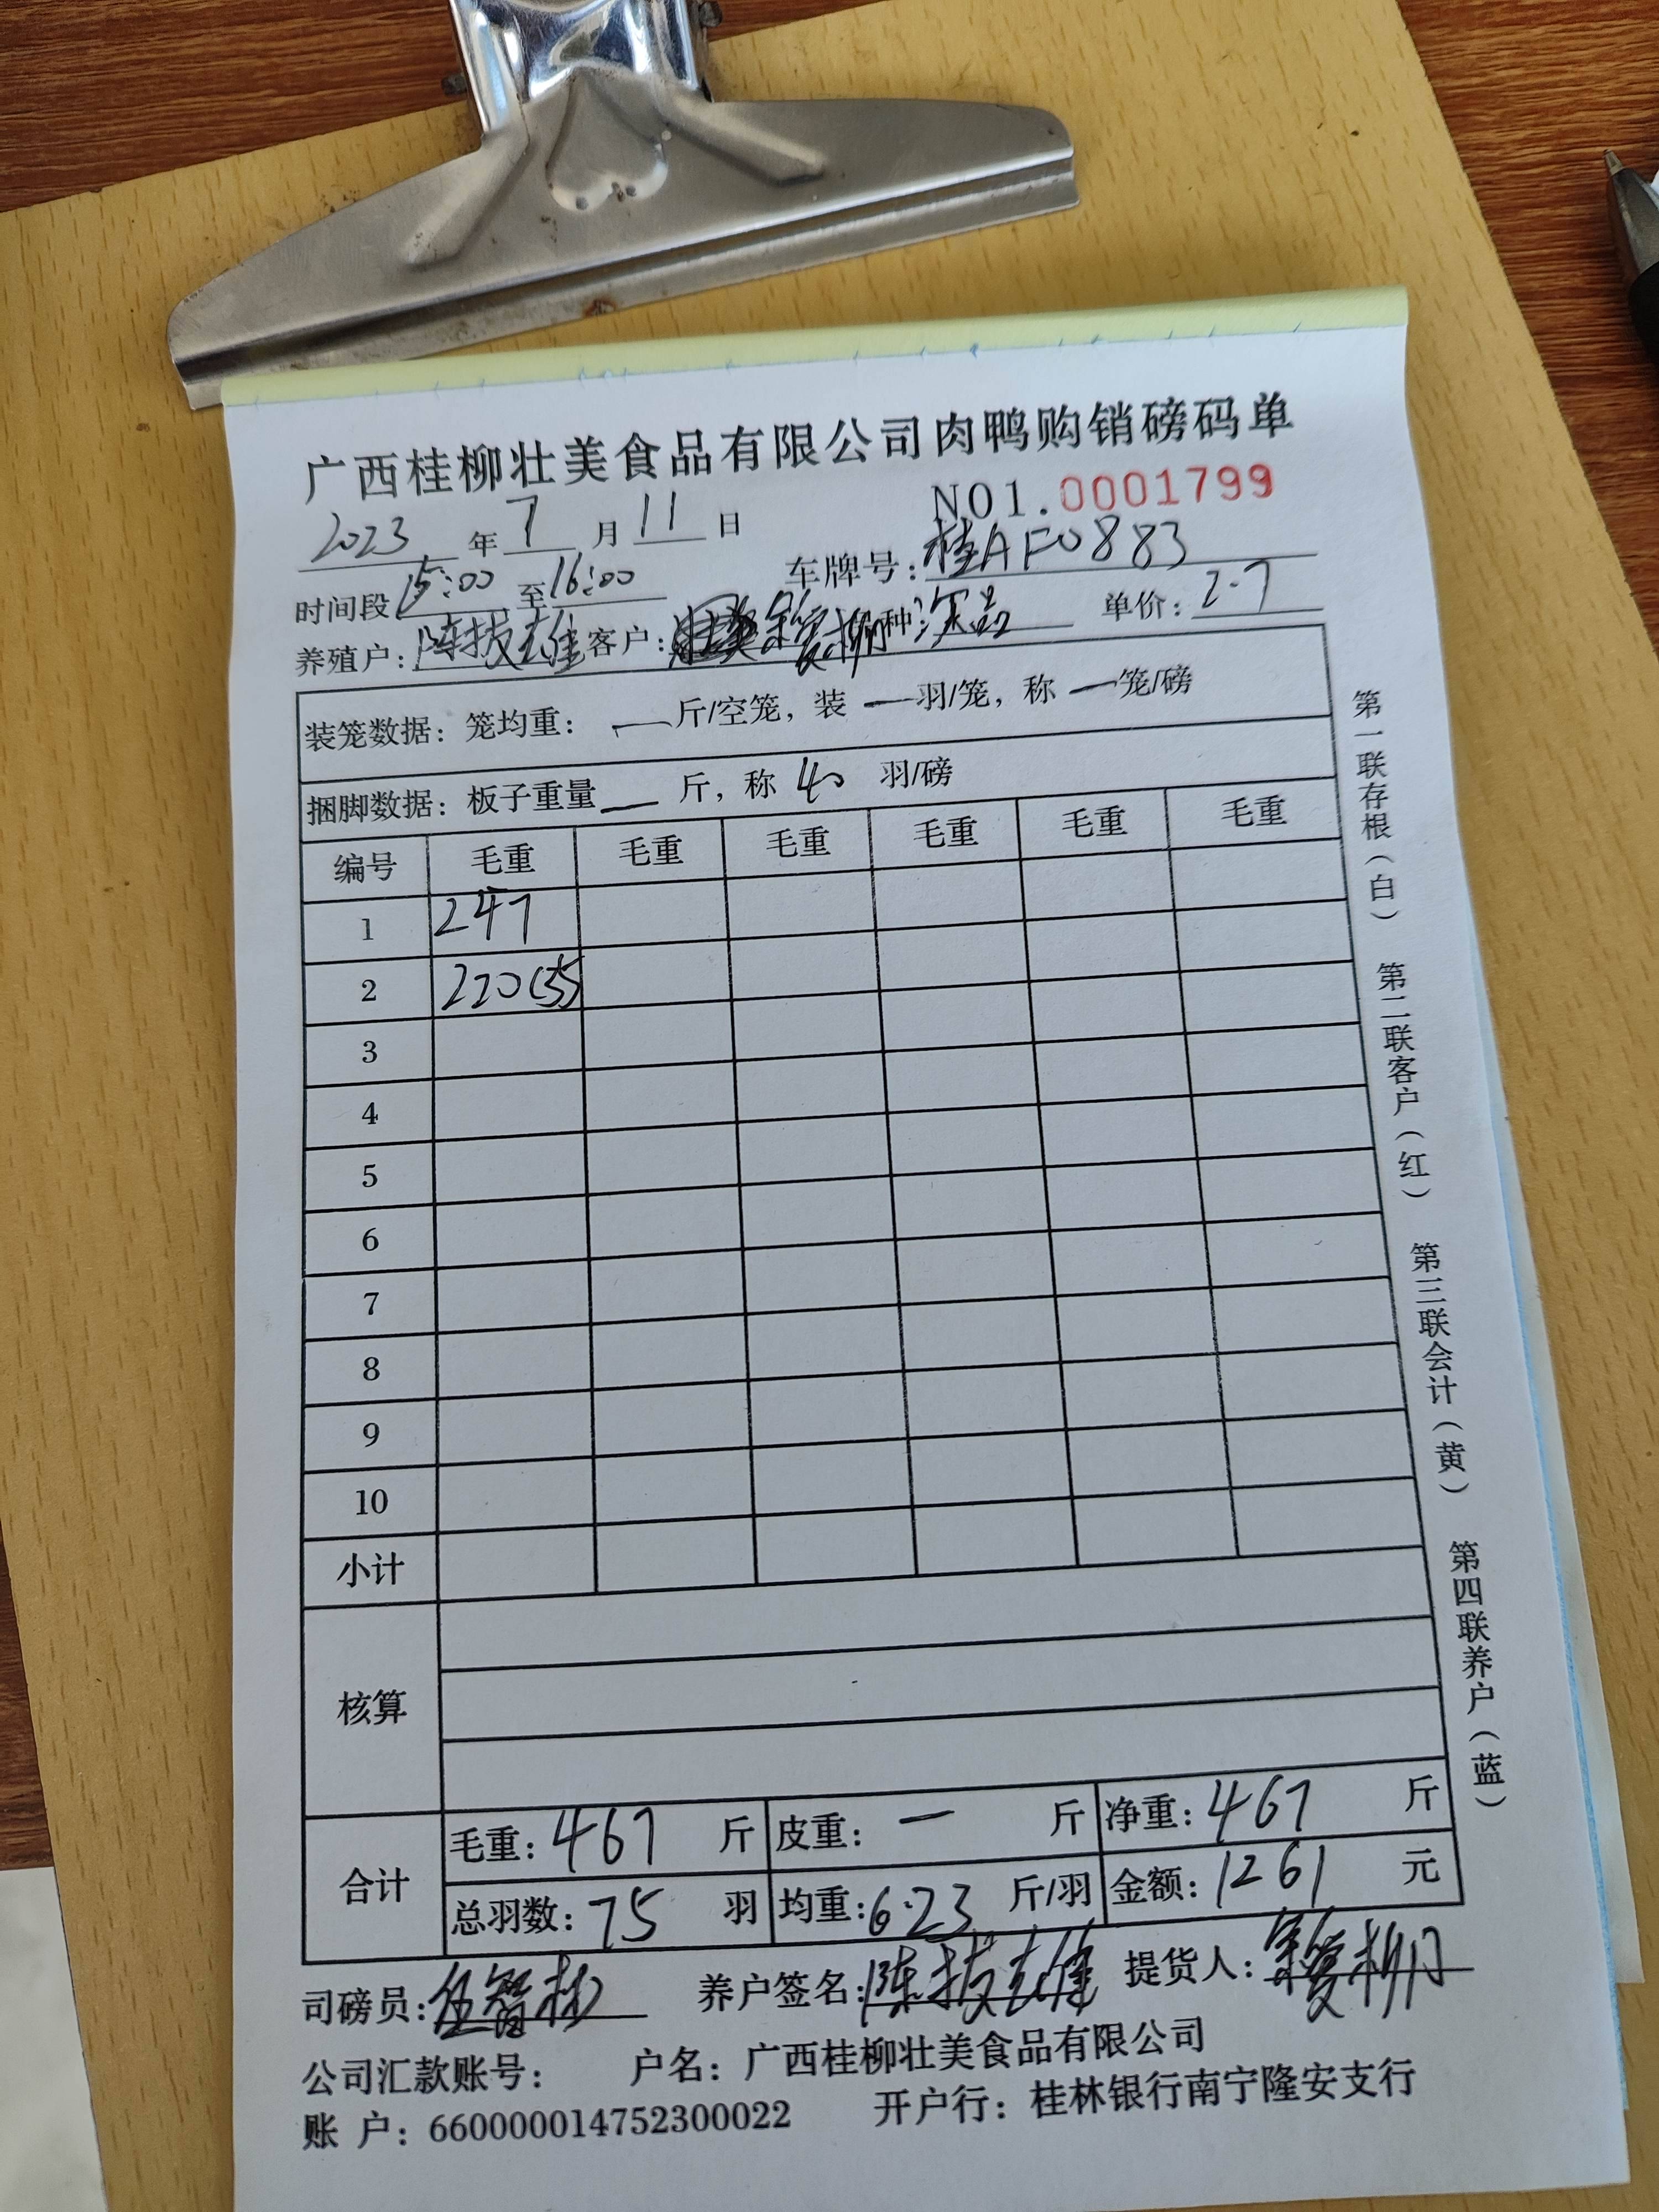 广西桂柳壮美食品有限公司肉鸭购销磅码单
NO1.0001799
2023 年 7 月 11 日
车牌号:桂AF0883
时间段 15:00 至 16:00
养殖户: 陈 雄 客户: 种: 单价: 2.7
装笼数据: 笼均重: — 斤/空笼, 装 — 羽/笼, 称 — 笼/磅
捆脚数据: 板子重量 — 斤, 称 40 羽/磅
编号 毛重 毛重 毛重 毛重 毛重 毛重
1 247
2 220(35
3
4
5
6
7
8
9
10
小计
核算
合计
毛重: 467 斤 皮重: — 斤 净重: 467 斤
总羽数: 75 羽 均重: 6.23 斤/羽 金额: 1261 元
司磅员: 养户签名: 陈 雄 提货人:
公司汇款账号: 户名: 广西桂柳壮美食品有限公司
账 户: 660000014752300022 开户行: 桂林银行南宁隆安支行
第一联存根(白) 第二联客户(红) 第三联会计(黄) 第四联养户(蓝)